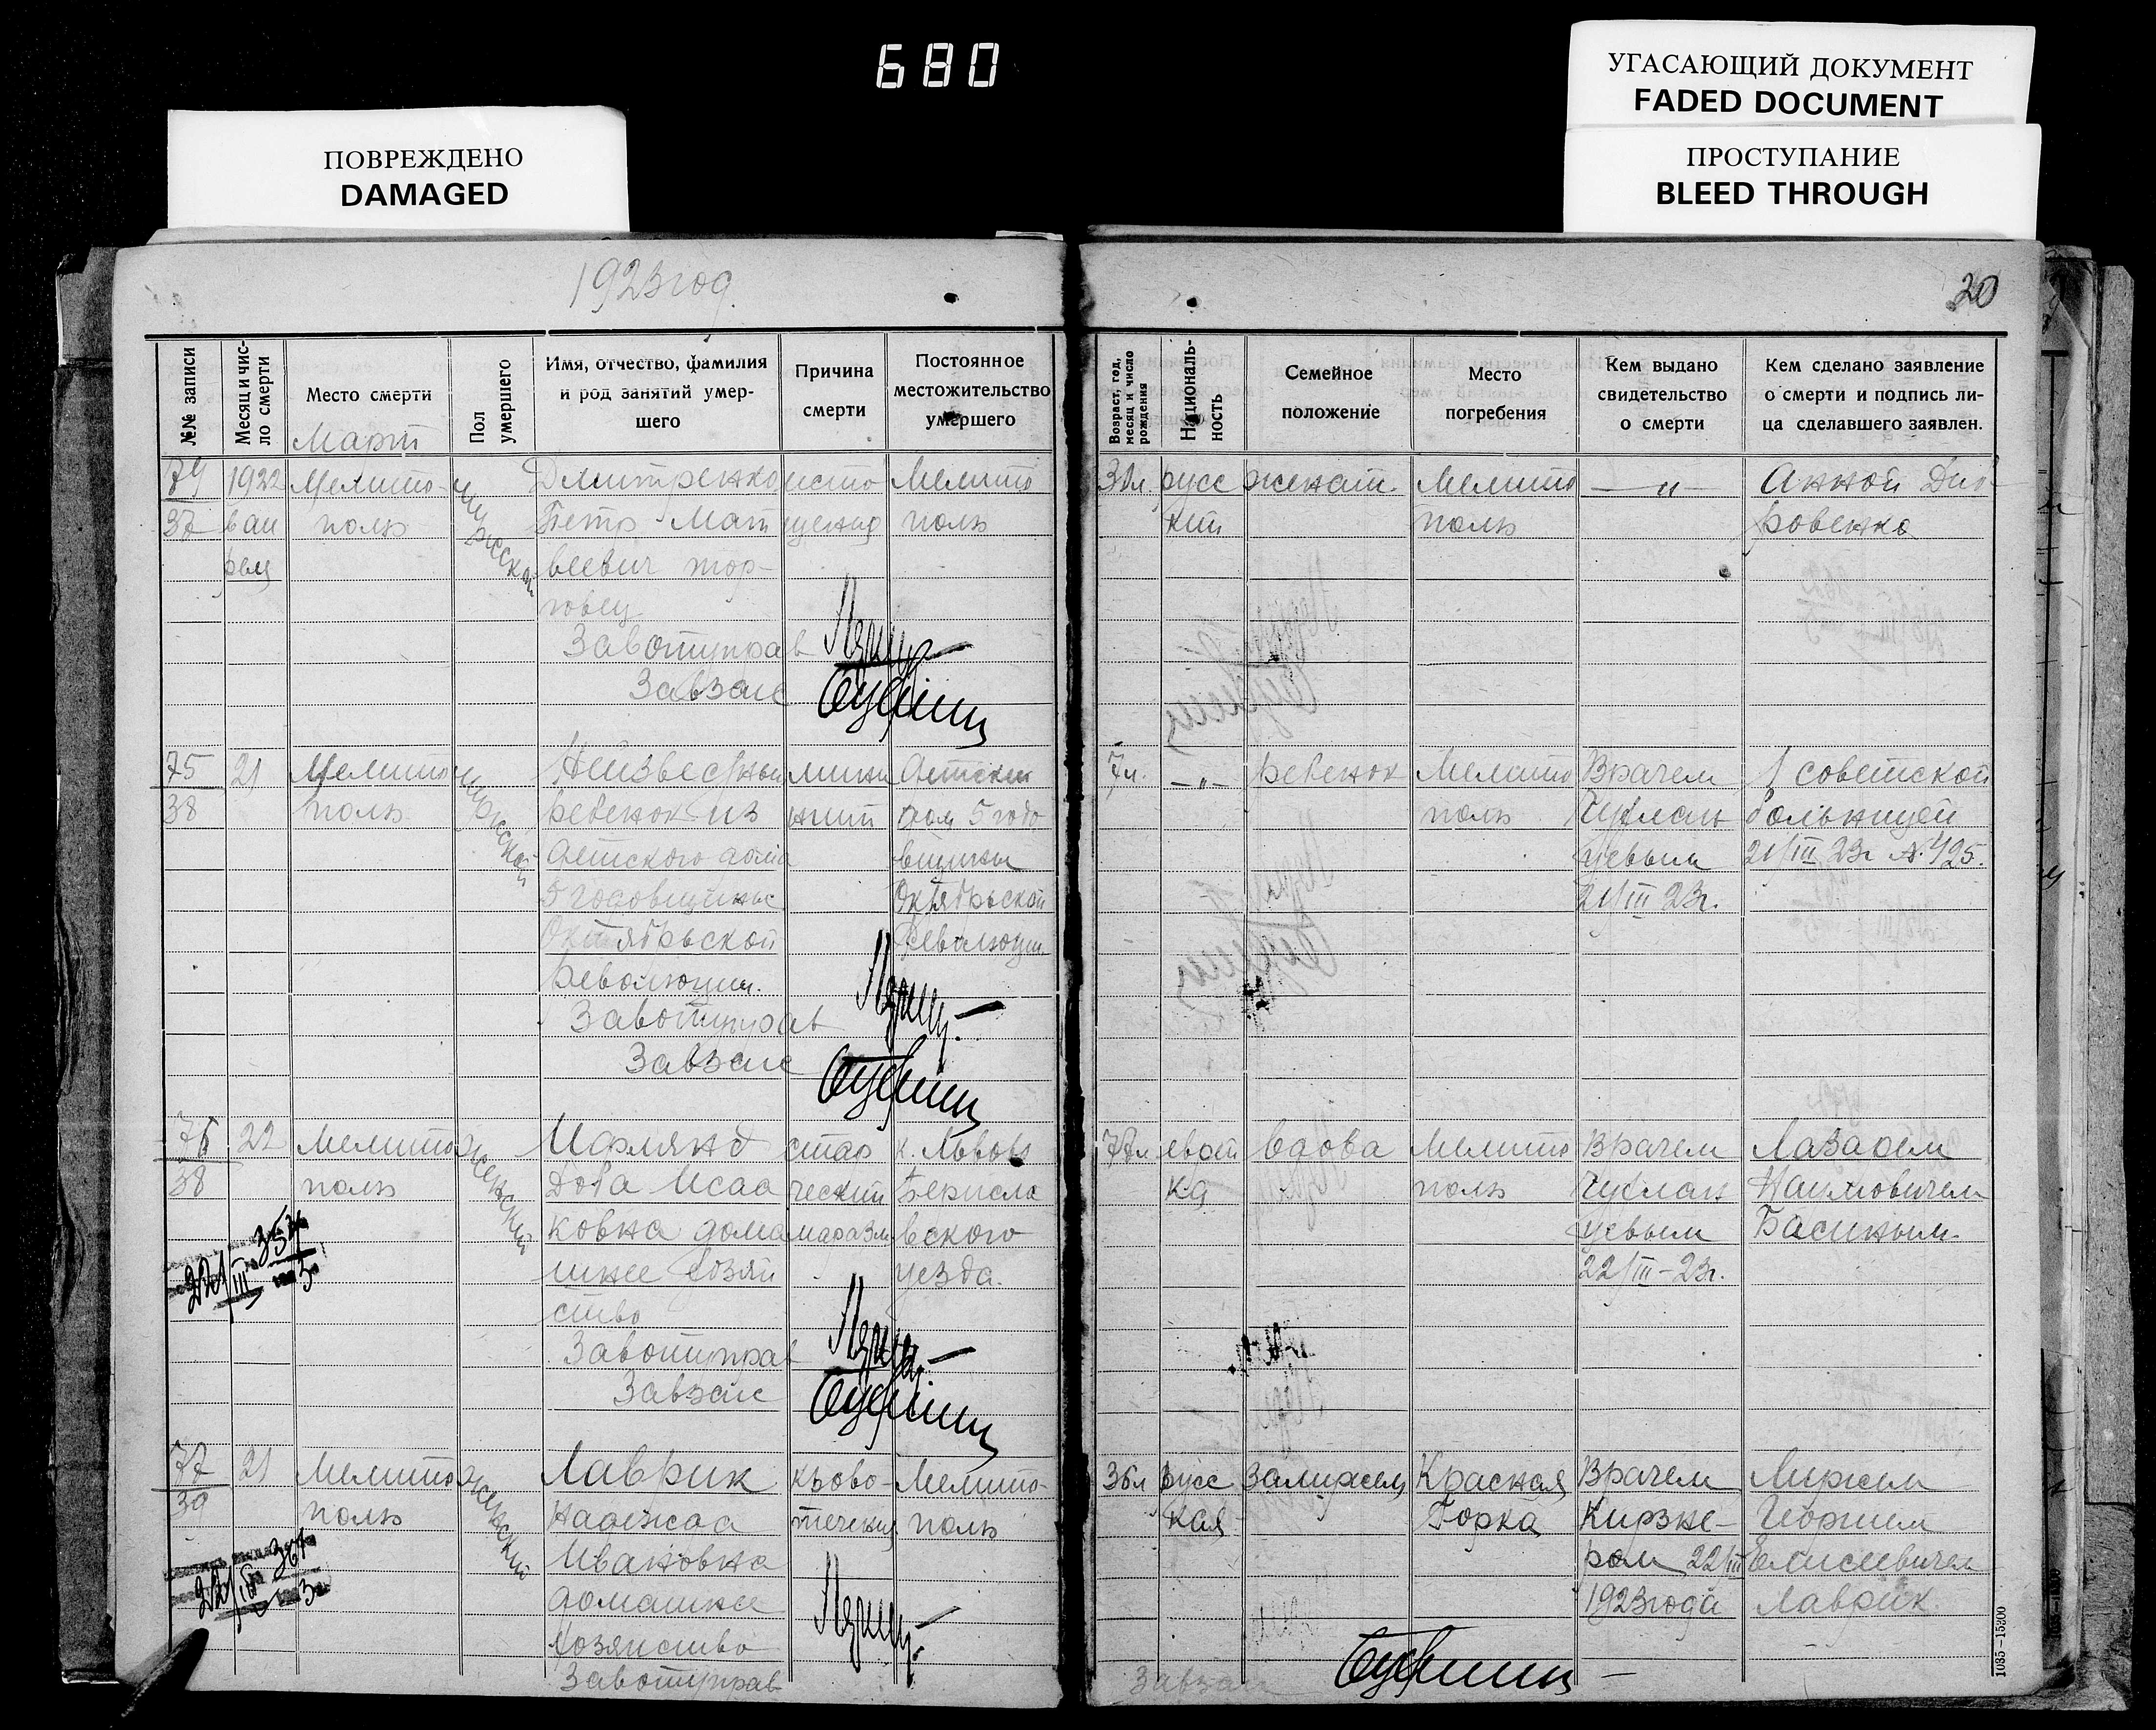 680
ПОВРЕЖДЕНО
DAMAGED
УГАСАЮЩИЙ ДОКУМЕНТ
FADED DOCUMENT
ПРОСТУПАНИЕ
BLEED THROUGH
1923 год.
20
№№ записи
Месяц и чис-
ло смерти
Место смерти
Март
Пол
умершего
Имя, отчество, фамилия
и род занятий умер-
шего
Причина
смерти
Постоянное
местожительство
умершего
Возраст, год,
месяц и число
рождения
Националь-
ность
Семейное
положение
Место
погребения
Кем выдано
свидетельство
о смерти
Кем сделано заявление
о смерти и подпись ли-
ца сделавшего заявлен.
74
37
1922
Мелито-
поль
мужской
Дмитренко
Петр Мат
веевич тор-
говец
Завотуправ
Завзагс
исто
щения
Мелито
поль
русс
кий
женат.
Мелито
поль
— „ —
Анной
ровенко
75
38
21
Мелито
поль
мужской
Неизвестный
ребенок из
детского дома
5 годовщины
Октябрьской
Революции.
Завотуправ
Завзагс
Детский
дом 5 годо
вщины
Октябрьской
Революции
7 л.
— „ —
ребенок
Мелито
поль
Врачем
21/III 23г.
1 советской
больницей
21/III 23г № 425.
76
38
22
Мелито
поль
женский
Доба Исаа
ковна дома
шнее хозяй
ство
Завотуправ
Завзагс
стар
ческий
маразм
к. Львов
Берисла
вского
уезда.
77 л
еврей
ка
вдова
Мелито
поль
Врачем
22/III-23г.
Лазарем
Наумовичем
Басиным.
77
39
21
Мелито
поль
женский
Лаврик
Надежда
Ивановна
домашнее
хозяйство
Завотуправ
крово-
течения
Мелито-
поль
36 л
русс
кая
Замужем
Красная
Горка
Врачем
Кирзне-
ром 22/III
1923 года
Мужем
Георгием
Елисеевичем
Лаврик.
Завзагс
1035—15300